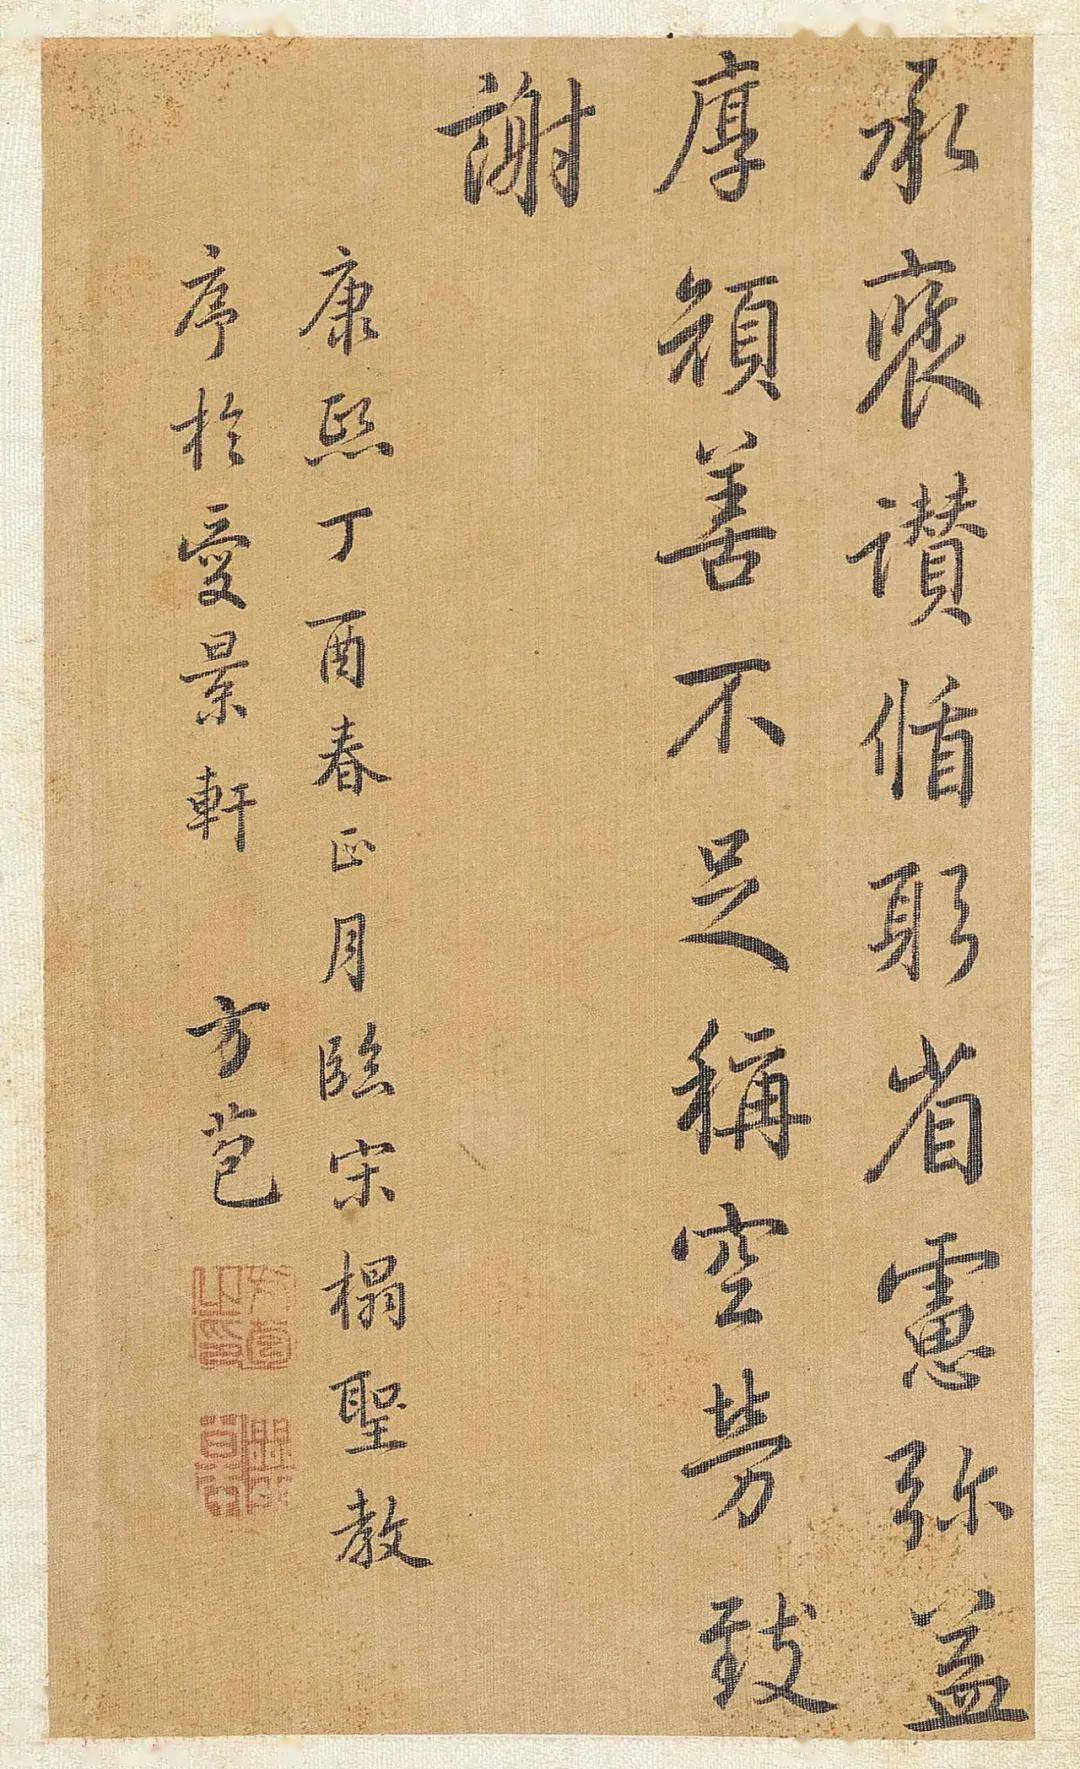 承褒讚循躬省慮弥益
厚顔善不足稱空勞致
謝
康熙丁酉春正月臨宋榻聖教
序於愛景軒 方苞
方苞之印